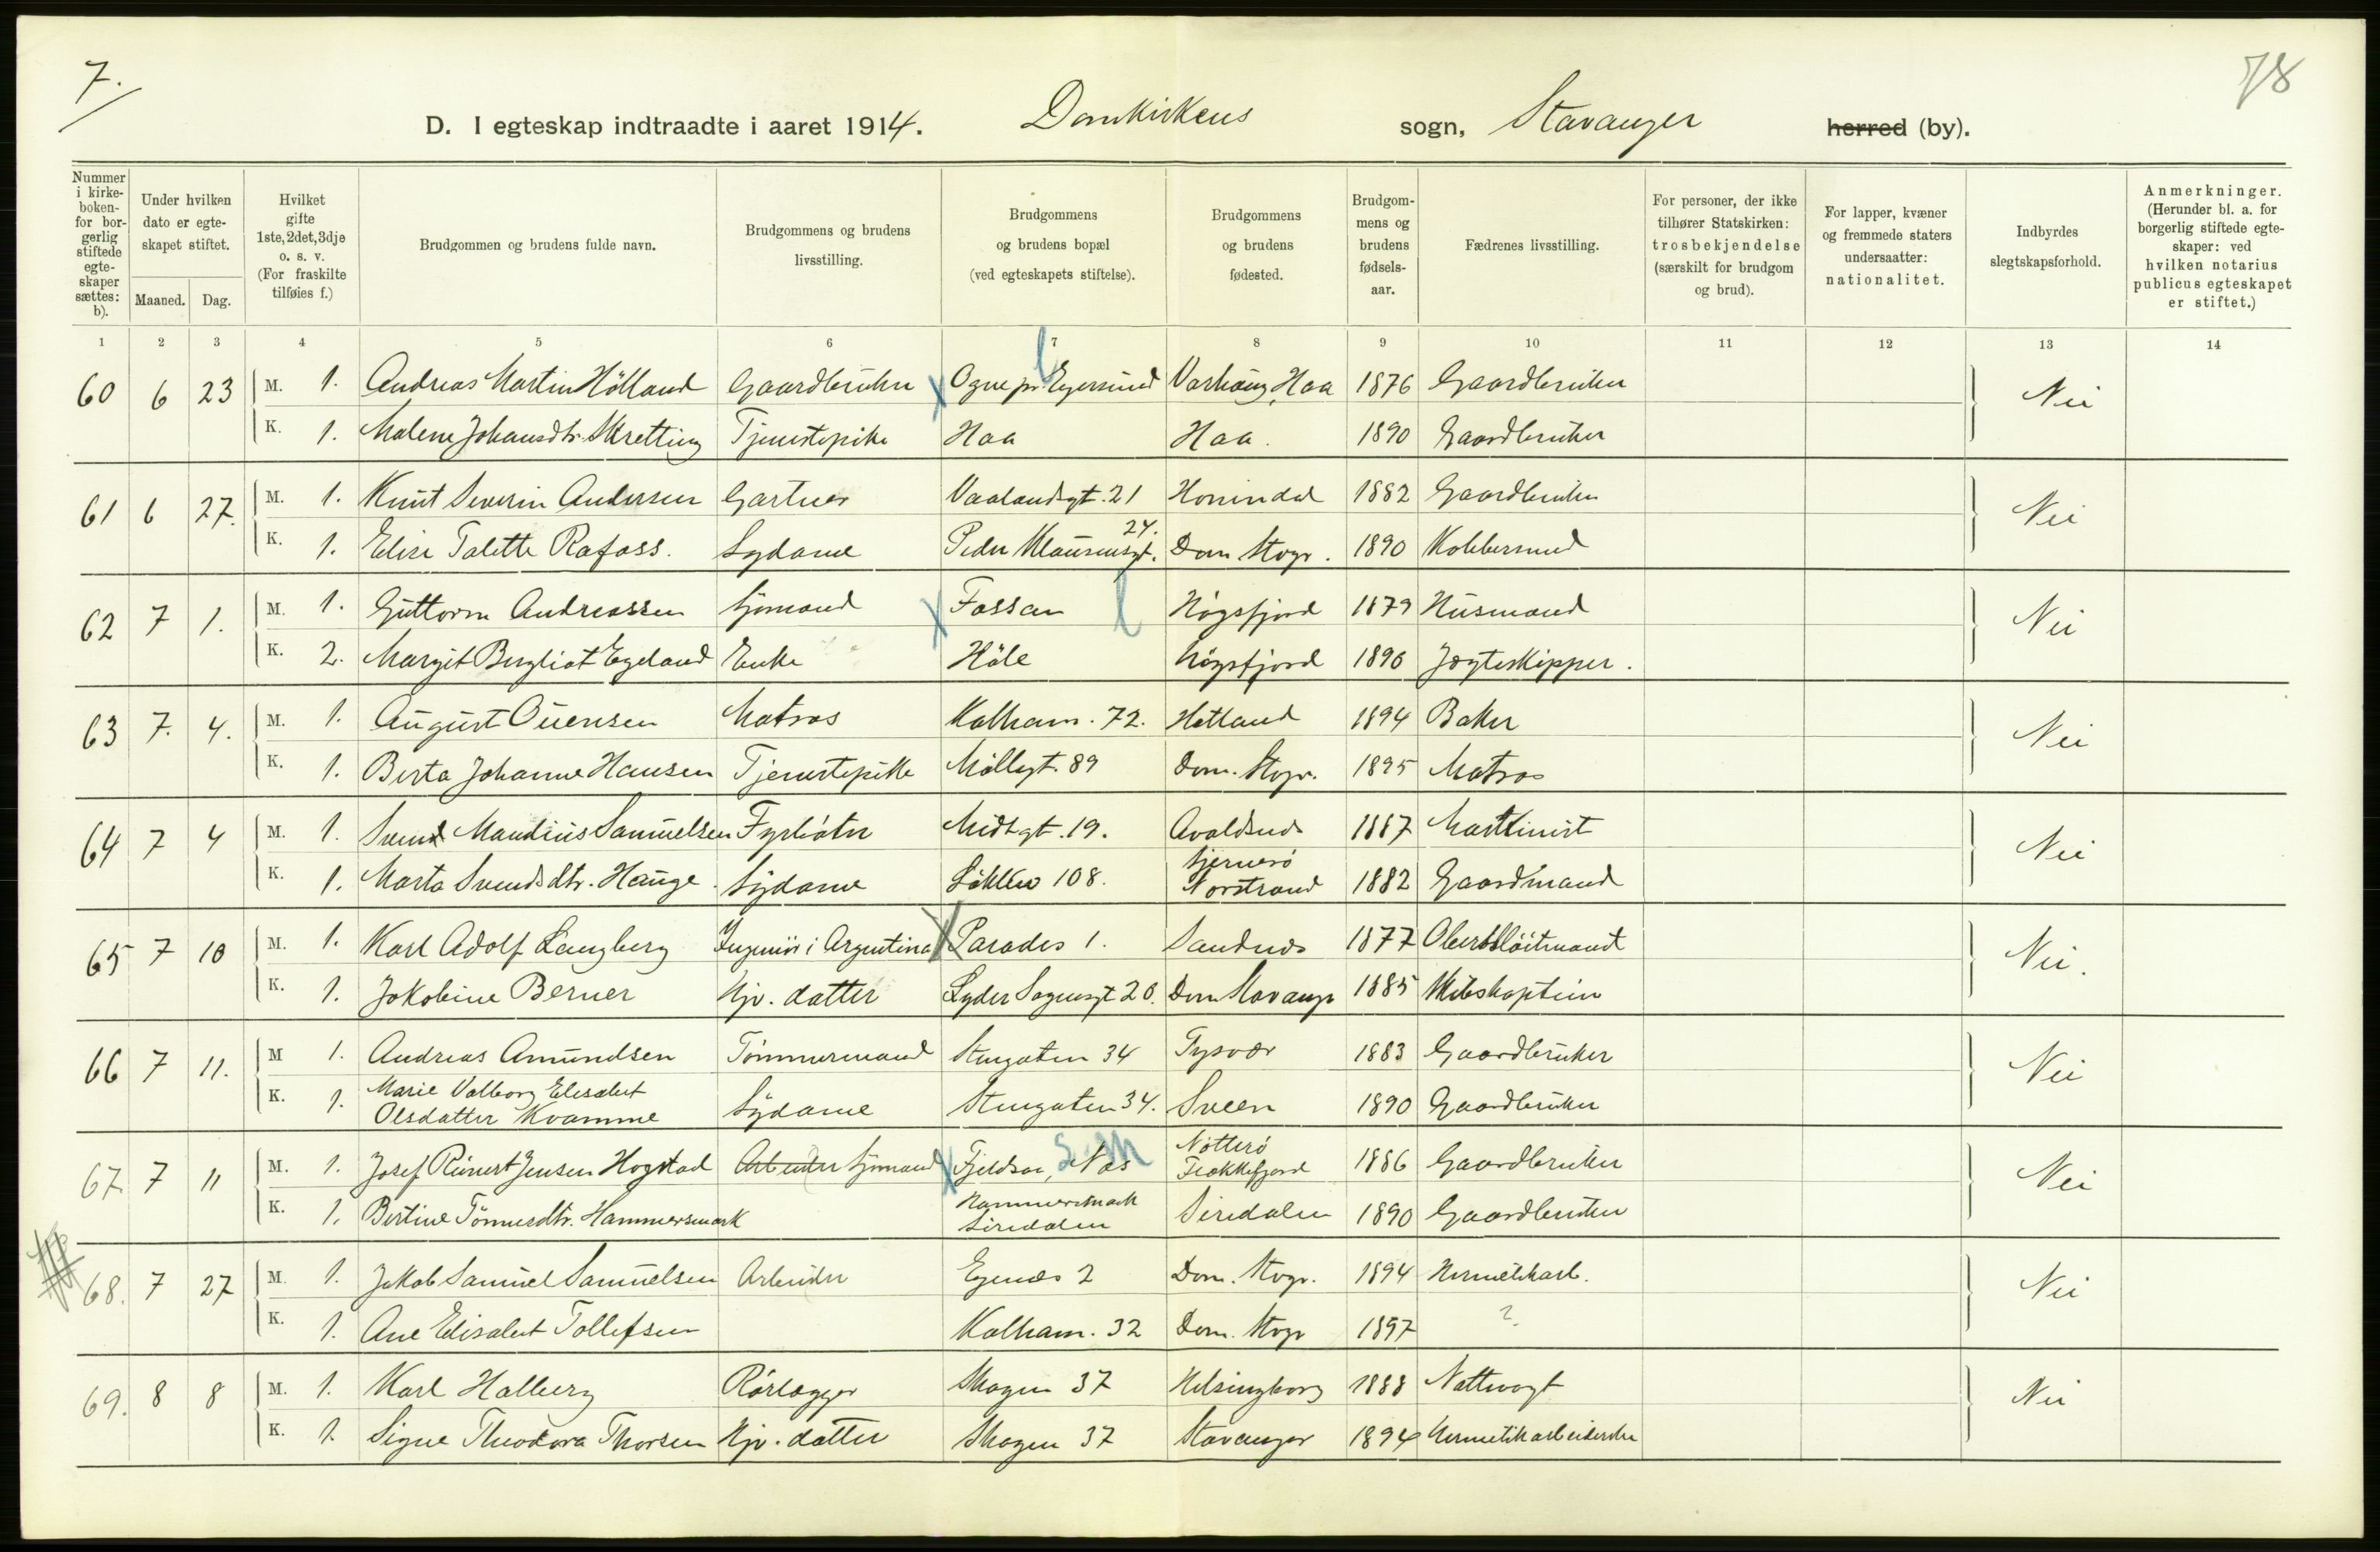 7.
78
D. I egteskap indtraadte i aaret 1914. Domkirkens sogn, Stavanger herred (by).
Nummer i kirke-boken- for bor-gerlig stiftede egte-skaper sættes: b). Under hvilken dato er egte-skapet stiftet. Maaned. Dag. Hvilket gifte 1ste, 2det, 3dje o. s. v. (For fraskilte tilføies f.) Brudgommen og brudens fulde navn. Brudgommens og brudens livsstilling. Brudgommens og brudens bopæl (ved egteskapets stiftelse). Brudgommens og brudens fødested. Brudgom-mens og brudens fødsels-aar. Fædrenes livsstilling. For personer, der ikke tilhører Statskirken: trosbekjendelse (særskilt for brudgom og brud). For lapper, kvæner og fremmede staters undersaatter: nationalitet. Indbyrdes slegtskapsforhold. Anmerkninger. (Herunder bl. a. for borgerlig stiftede egte-skaper: ved hvilken notarius publicus egteskapet er stiftet.)
1 2 3 4 5 6 7 8 9 10 11 12 13 14
60 6 23 M. 1. Andreas Martin Hölland Gaardbruker Ogne pr. Egersund Varhaug, Haa 1876 Gaardbruker Nei
K. 1. Malene Johansdtr. Skretting Tjenestepike Haa Haa. 1890 Gaardbruker
61 6 27. M. 1. Knut Severin Andersen Gartner Vaalandsgt. 21 Honindal 1882 Gaardbruker Nei
K. 1. Elise Talette Rafoss. Sydame Peder Klausensgt. 24. Dom Stvgr. 1890 Kobbersmed
62 7 1. M. 1. Guttorm Andreassen Sjömand Fossan Högsfjord 1879 Husmand Nei
K. 2. Margit Bergliot Egeland Enke Höle Högsfjord 1890 Jægteskipper.
63 7. 4. M. 1. August Ouensen Matros Kalham. 72. Hetland 1894 Baker Nei
K. 1. Berta Johanne Hansen Tjenestepike Möllegt. 89 Dom. Stvgr. 1895 Matros
64 7 4 M. 1. Svend Mandius Samuelsen Fyrböter Midtgt. 19. Avaldsnes 1887 Maskinist Nei
K. 1. Marta Svendsdtr. Hauge. Sydame Lökkev 108. Sjernerö Norstrand 1882 Gaardmand
65 7 10 M. 1. Karl Adolf Langberg Ingeniör i Argentina Parades 1. Sandnes 1877 Oberstlöitnant Nei.
K. 1. Jakobine Berner Hjv. datter Lyder Sagensgt 20. Dom Stavanger 1885 Skibskaptein
66 7 11. M 1. Andreas Amundsen Tömmermand Stengaten 34 Tysvær 1883 Gaardbruker Nei
K. 1. Marie Valborg Elisabet Olsdatter Kvamme Sydame Stengaten 34. Sveen 1890 Gaardbruker
67. 7 11 M. 1. Josef Reinert Jensen Hogstad Arbeider Sjömand Fjeldsaa, Nes Nötterö Flekkefjord 1886 Gaardbruker Nei
K. 1. Bertine Tönnesdtr. Hammersmark Hammersmark Siredalen Siredalen 1890 Gaardbruker
68. 7 27 M. 1. Jakob Samuel Samuelsen Arbeider Egenæs 2 Dom. Stvgr. 1894 Hermetikarb. Nei
K. 1. Ane Elisabet Tollefsen Kalham. 32 Dom. Stvgr 1897 ?
69. 8 8 M. 1. Karl Hallberg Rörlægger Skagen 37 Helsingborg 1888 Nattevagt Nei
K. 1. Signe Theodora Thorsen Hjv. datter Skagen 37 Stavanger 1894 Hermetikarbeiderske